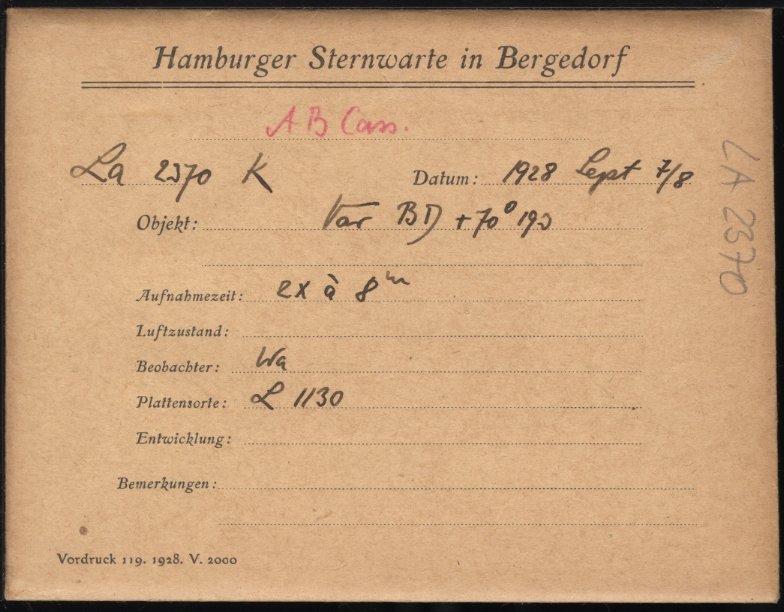 Hamburger Sternwarte in Bergedorf
AB Cass.
La 2370 K Datum: 1928 Sept 7/8
Objekt: Var BD +70° 193
Aufnahmezeit: 2x à 8ᵐ
Luftzustand:
Beobachter: Wa
Plattensorte: L 1130
Entwicklung:
Bemerkungen:
Vordruck 119. 1928. V. 2000
LA 2370